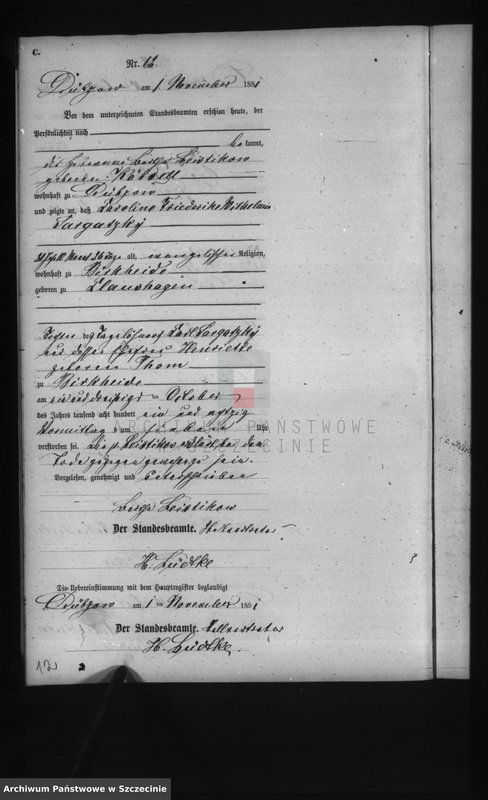 C.
Nr. 12.
Dübzow am 1 November 1881
Vor dem unterzeichneten Standesbeamten erschien heute, der
Persönlichkeit nach
bekannt,
die Leistikow
geborene
wohnhaft zu Dübzow
und zeigte an, daß Caroline Friederike Wilhelmine
Largatzky
alt, evangelischer Religion,
wohnhaft zu Birkheide
geboren zu Claushagen
Tochter des Tagelöhners Carl Largatzky
und dessen Ehefrau Henriette
geborene Thom
zu Birkheide
am ein und dreißigsten October
des Jahres tausend acht hundert ein und achtzig
Vormittag s um Uhr
verstorben sei. Die p. Leistikow erklärte bei dem
Tode zugegen gewesen zu sein.
Vorgelesen, genehmigt und unterschrieben
Leistikow
Der Standesbeamte. Stellvertreter
H. Lüdtke
Die Uebereinstimmung mit dem Hauptregister beglaubigt
Dübzow am 1 ten November 1881
Der Standesbeamte. Stellvertreter
H. Lüdtke.
12
ARCHIWUM PAŃSTWOWE
W SZCZECINIE
Archiwum Państwowe w Szczecinie